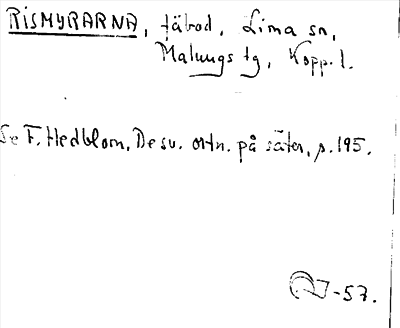 RISMYRARNA, fäbod, Lima sn,
Malungs tg, Kopp. l.
Se F. Hedblom, De sv. ortn. på säter, p. 195.
-57.